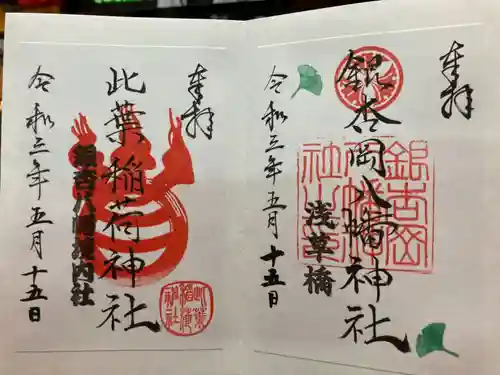 奉拝
銀杏岡八幡神社
銀杏岡
社之印
浅草橋
令和三年五月十五日
奉拝
此葉稲荷神社
此葉
稲荷
神社
銀杏八幡境内社
令和三年五月十五日